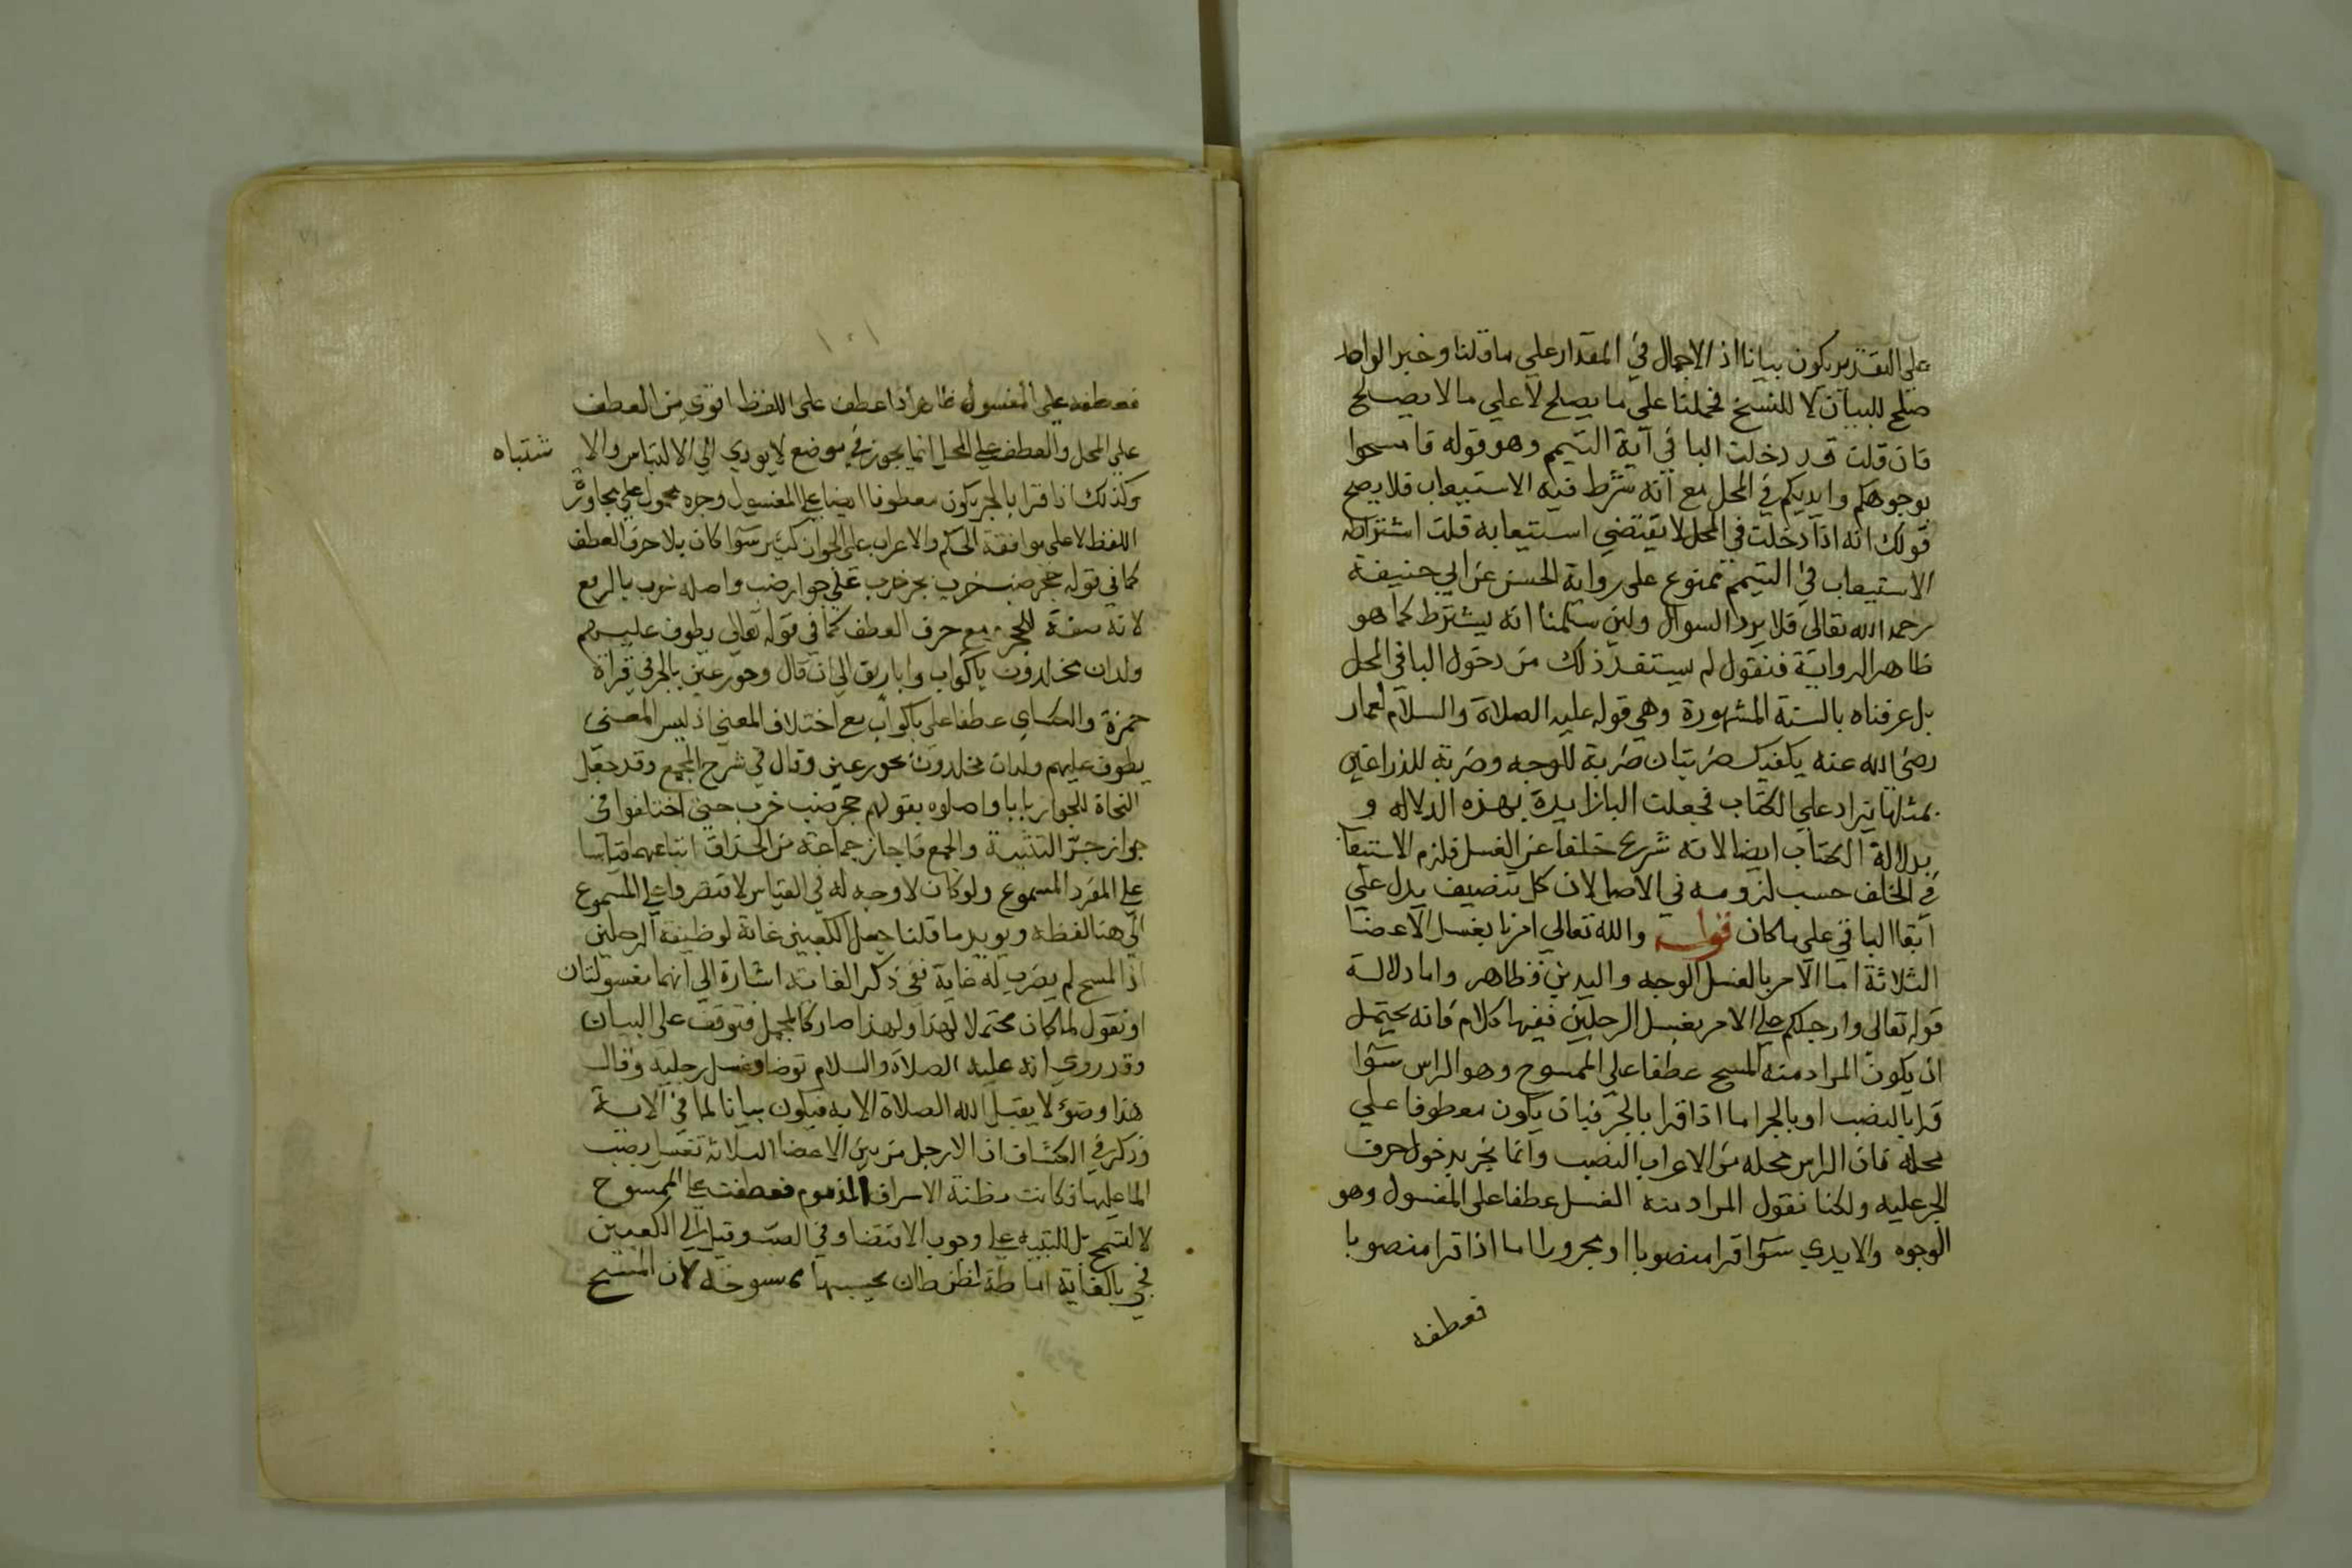 على التقدير يكون بيانا اذ الاجمال في المقدار علي ما قلنا وخبر الواحد
صلح للبيان لا للنسخ فحملنا علي ما يصلح لا علي ما لا يصلح
فان قلت قد دخلت البا في آية التيمم وهو قوله فامسحوا
بوجوهكم وايديكم في المحل مع انه شرط فيه الاستيعاب فلا يصح
قولك انه اذا دخلت في المحل لا يقتضي استيعابه قلت اشتراط
الاستيعاب في التيمم ممنوع على رواية الحسن عن ابي حنيفة
رحمه الله تعالى فلا يرد السوال ولين سلمنا انه يشترط كما هو
ظاهر الرواية فنقول لم يستفد ذلك من دخول البا في المحل
بل عرفناه بالسنة المشهورة وهي قوله عليه الصلاة والسلام لعمار
رضي الله عنه يكفيك ضربتان ضربة للوجه وضربة للذراعين
بمثلها يزاد علي الكتاب فجعلت البا زايدة بهذه الدلاله و
بدلالة الكتاب ايضا لانه شرع خلفا عن الغسل فلزم الاستيعاب
في الخلف حسب لزومه في الاصل لان كل تنصيف يدل علي
ابقا الباقي علي ما كان قوله والله تعالي امرنا بغسل الاعضا
الثلاثة اما الامر بالغسل الوجه واليدين فظاهر واما دلالة
قوله تعالى وارجلكم علي الامر بغسل الرجلين ففيها كلام فانه يحتمل
ان يكون المراد منه المسح عطفا علي الممسوح وهو الراس سوا
قرا بالنصب او بالجر اما اذا قرا بالجر فبان يكون معطوفا علي
محله فان الراس محله من الاعراب النصب وانما نجر بدخول حرف
الجر عليه ولكنا نقول المراد منه الغسل عطفا على المغسول وهو
الوجوه والايدي سوا قرا منصوبا او مجرورا اما اذا قرا منصوبا
فعطفه
فعطفه علي المغسول ظاهر اذا عطف على اللفظ اقوي من العطف
علي المحل والعطف علي المحل انما يجوز في موضع لا يودي الي الالتباس والا شتباه
وكذلك اذا قرا بالجر يكون معطوفا ايضا علي المغسول وجره محمول علي مجاورة
اللفظ لا على موافقة الحكم والاعراب على الجوار كثير سوا كان بلا حرف العطف
كما في قوله جحر ضب خرب بجر خرب علي جوار ضب واصله خرب بالرفع
لانه صفة للجحر مع حرف العطف كما في قوله تعالي يطوف عليهم
ولدان مخلدون باكواب واباريق الي ان قال وحور عين بالجر في قراة
حمزة والكساي عطفا علي باكواب مع اختلاف المعني اذ ليس المعنى
يطوف عليهم ولدان مخلدون بحور عين وقال في شرح المجمع وقد جعل
النحاة للجوار بابا واصلوه بقولهم جحر ضب خرب حتي اختلفوا في
جواز جر التثنية والجمع فاجاز جماعة من الحذاق اتباعهما قياسا
علي المفرد المسموع ولو كان لا وجه له في القياس لاقتصروا علي المسموع
الي هنا لفظه ويويد ما قلنا جعل الكعبين غاية لوظيفة الرجلين
اذ المسح لم يضرب له غاية ففي ذكر الغاية اشارة الي انهما مغسولتان
او نقول لما كان محتملا لهذا ولهذا صار كالمجمل فتوقف على البيان
وقد روي انه عليه الصلاة والسلام توضا وغسل رجليه وقال
هذا وضوء لا يقبل الله الصلاة الا به فيكون بيانا لما في الاية
وذكر في الكشاف ان الارجل من بين الاعضا الثلاثة تغسل بصب
الما عليها فكانت مظنة الاسراف المذموم فعطفت علي الممسوح
لا لتمسح بل للتنبيه علي وجوب الاقتصاد في الصب وقيل الي الكعبين
فجي بالغاية اماطة لظن ظان يحسبها ممسوحة لان المسح